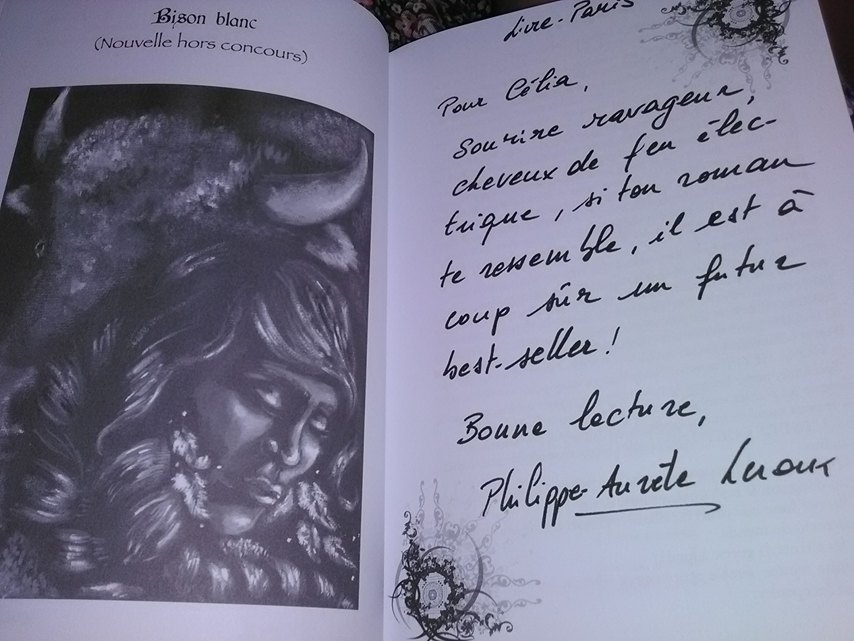 Bison blanc
(Nouvelle hors concours)
Livre-Paris
Pour Célia,
Sourire ravageur,
cheveux de feu élec-
trique, si ton roman
te ressemble, il est à
coup sûr un futur
best-seller !
Bonne lecture,
Philippe-Aurèle Leroux